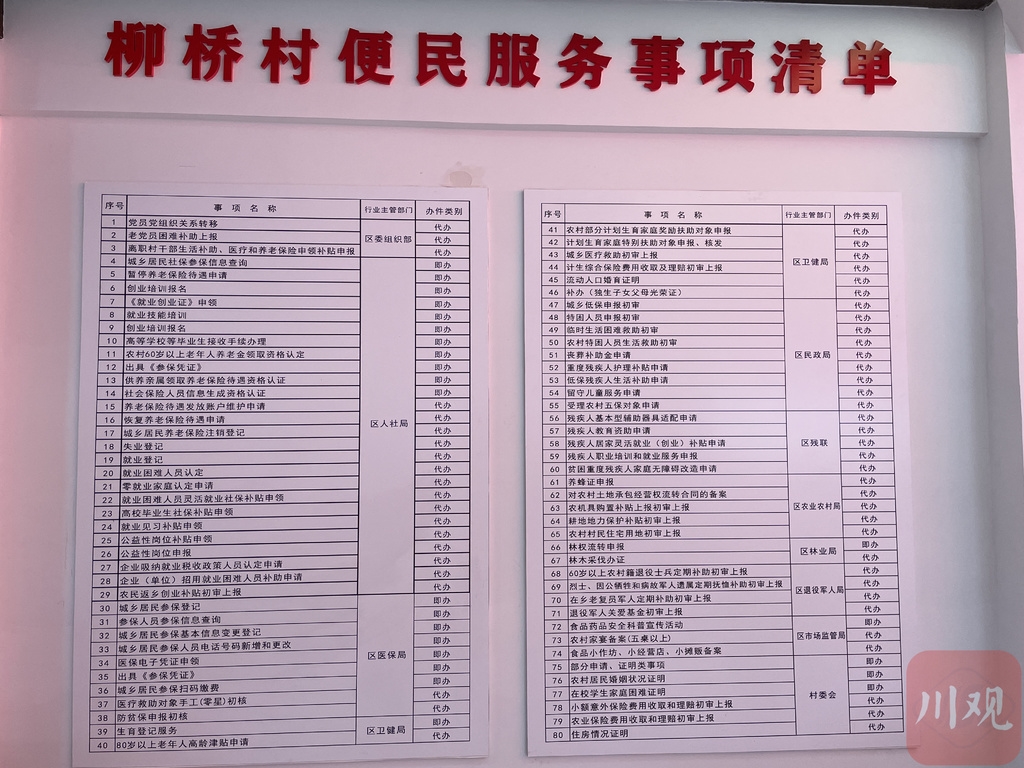 柳桥村便民服务事项清单
序号 事项名称 行业主管部门 办件类别
1 党员党组织关系转移 区委组织部 代办
2 老党员困难补助上报 代办
3 离职村干部生活补助、医疗和养老保险申领补贴申报 代办
4 城乡居民社保参保信息查询 区人社局 即办
5 暂停养老保险待遇申请 即办
6 创业培训报名 即办
7 《就业创业证》申领 即办
8 就业技能培训 即办
9 创业培训报名 即办
10 高等学校等毕业生接收手续办理 即办
11 农村60岁以上老年人养老金领取资格认定 代办
12 出具《参保凭证》 即办
13 供养亲属领取养老保险待遇资格认证 即办
14 社会保险人员信息生成资格认证 即办
15 养老保险待遇发放账户维护申请 代办
16 恢复养老保险待遇申请 代办
17 城乡居民养老保险注销登记 代办
18 失业登记 代办
19 就业登记 代办
20 就业困难人员认定 代办
21 零就业家庭认定申请 代办
22 就业困难人员灵活就业社保补贴申领 代办
23 高校毕业生社保补贴申领 代办
24 就业见习补贴申领 代办
25 公益性岗位补贴申领 代办
26 公益性岗位申报 代办
27 企业吸纳就业税收政策人员认定申请 代办
28 企业（单位）招用就业困难人员补助申请 代办
29 农民返乡创业补贴初审上报 代办
30 城乡居民参保登记 区医保局 即办
31 参保人员参保信息查询 即办
32 城乡居民参保基本信息变更登记 即办
33 城乡居民参保人员电话号码新增和更改 即办
34 医保电子凭证申领 即办
35 出具《参保凭证》 即办
36 城乡居民参保扫码缴费 即办
37 医疗救助对象手工(零星)初核 代办
38 防贫保申报初核 代办
39 生育登记服务 区卫健局 即办
40 80岁以上老年人高龄津贴申请 代办
序号 事项名称 行业主管部门 办件类别
41 农村部分计划生育家庭奖励扶助对象申报 区卫健局 代办
42 计划生育家庭特别扶助对象申报、核发 代办
43 城乡医疗救助初审上报 代办
44 计生综合保险费用收取及理赔初审上报 代办
45 流动人口婚育证明 代办
46 补办（独生子女父母光荣证） 代办
47 城乡低保申报初审 区民政局 代办
48 特困人员申报初审 代办
49 临时生活困难救助初审 代办
50 农村特困人员生活救助初审 代办
51 丧葬补助金申请 代办
52 重度残疾人护理补贴申请 代办
53 低保残疾人生活补助申请 代办
54 留守儿童服务申请 代办
55 受理农村五保对象申请 代办
56 残疾人基本型辅助器具适配申请 区残联 代办
57 残疾人教育资助申请 代办
58 残疾人居家灵活就业（创业）补贴申请 代办
59 残疾人职业培训和就业服务申报 代办
60 贫困重度残疾人家庭无障碍改造申请 代办
61 养蜂证申报 区农业农村局 代办
62 对农村土地承包经营权流转合同的备案 代办
63 农机具购置补贴上报初审上报 代办
64 耕地地力保护补贴初审上报 代办
65 农村村民住宅用地初审上报 代办
66 林权流转申报 区林业局 即办
67 林木采伐办证 代办
68 60岁以上农村籍退役士兵定期补助初审上报 区退役军人局 代办
69 烈士、因公牺牲和病故军人遗属定期抚恤补助初审上报 代办
70 在乡老复员军人定期补助初审上报 代办
71 退役军人关爱基金初审上报 代办
72 食品药品安全科普宣传活动 区市场监管局 即办
73 农村家宴备案(五桌以上) 代办
74 食品小作坊、小经营店、小摊贩备案 代办
75 部分申请、证明类事项 村委会 即办
76 农村居民婚姻状况证明 即办
77 在校学生家庭困难证明 即办
78 小额意外保险费用收取和理赔初审上报 代办
79 农业保险费用收取和理赔初审上报 代办
80 住房情况证明 代办
川观